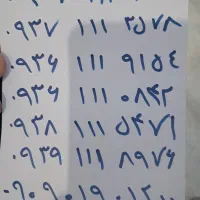 ۰۹۳۷ ۱۱۱ ۲۵۷۸
۰۹۳۶ ۱۱۱ ۹۱۵۴
۰۹۳۶ ۱۱۱ ۰۸۴۲
۰۹۳۸ ۱۱۱ ۵۴۷۱
۰۹۳۹ ۱۱۱ ۸۹۷۶